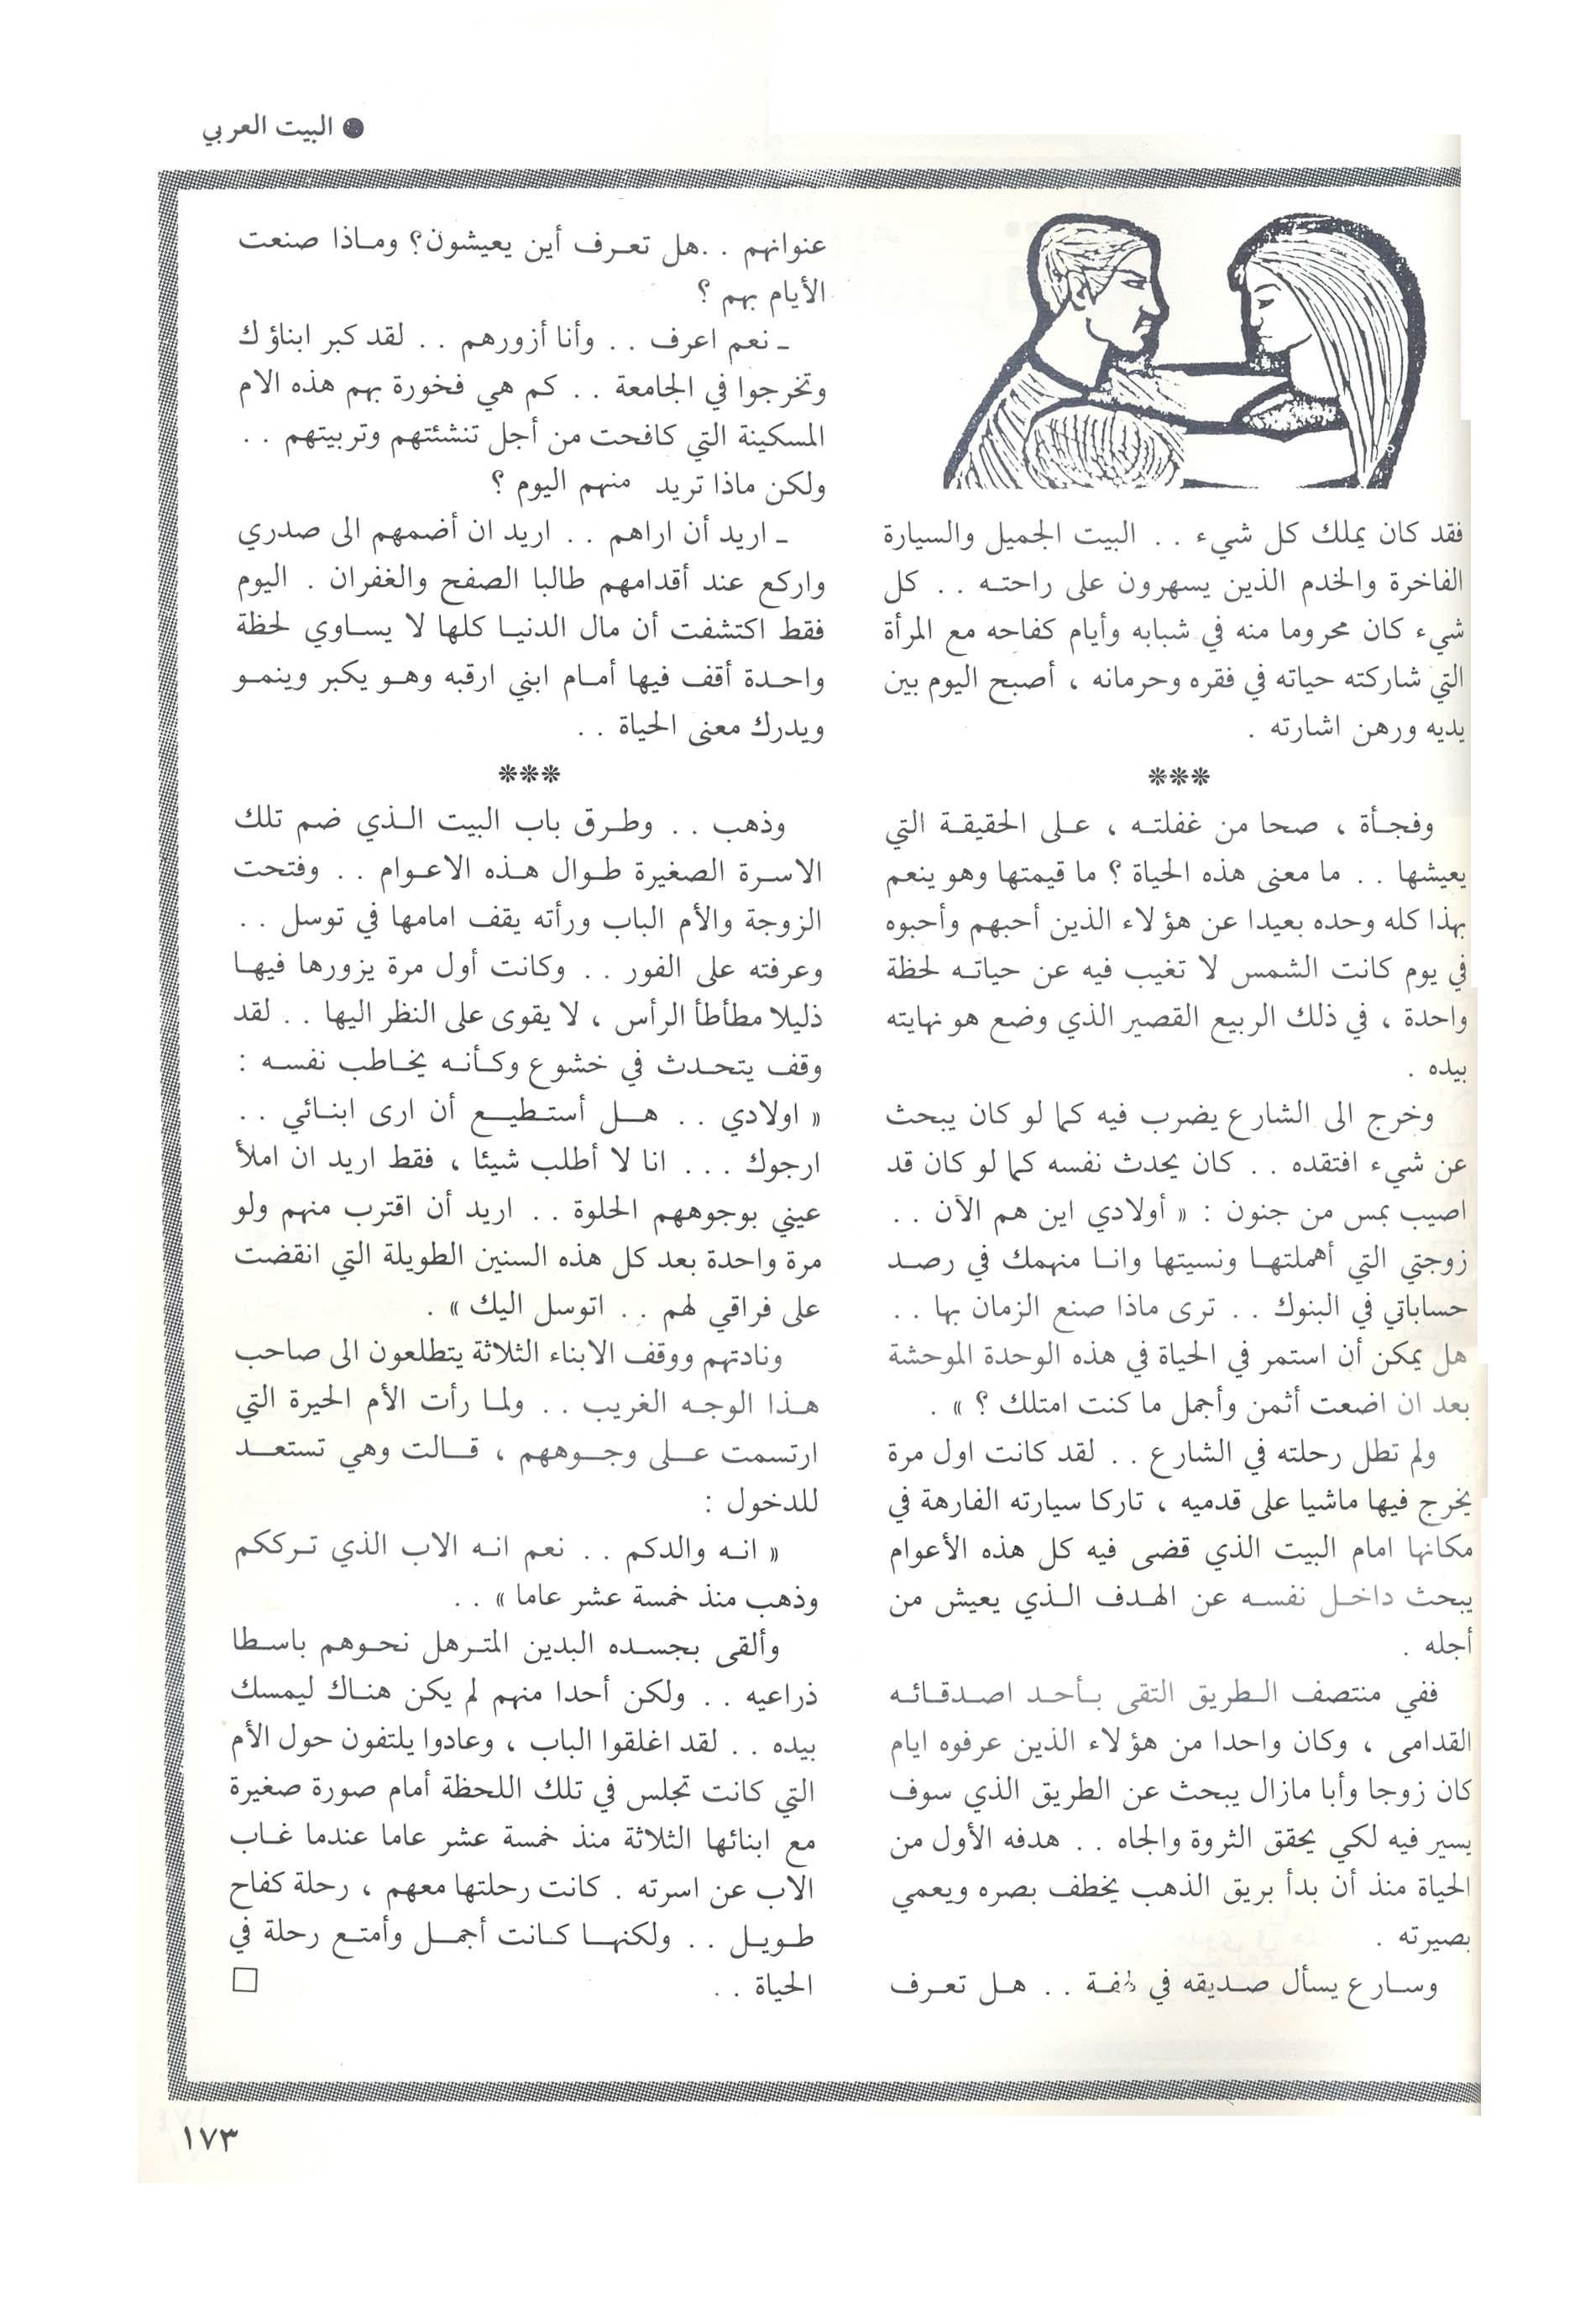 ● البيت العربي
فقد كان يملك كل شيء . . البيت الجميل والسيارة
الفاخرة والخدم الذين يسهرون على راحته . . كل
شيء كان محروما منه في شبابه وأيام كفاحه مع المرأة
التي شاركته حياته في فقره وحرمانه ، أصبح اليوم بين
يديه ورهن اشارته .
***
وفجأة ، صحا من غفلته ، على الحقيقة التي
يعيشها . . ما معنى هذه الحياة ؟ ما قيمتها وهو ينعم
بهذا كله وحده بعيدا عن هؤلاء الذين أحبهم وأحبوه
في يوم كانت الشمس لا تغيب فيه عن حياته لحظة
واحدة ، في ذلك الربيع القصير الذي وضع هو نهايته
بيده .
وخرج الى الشارع يضرب فيه كما لو كان يبحث
عن شيء افتقده . . كان يحدث نفسه كما لو كان قد
اصيب بمس من جنون : « أولادي اين هم الآن . .
زوجتي التي أهملتها ونسيتها وانا منهمك في رصد
حساباتي في البنوك . . ترى ماذا صنع الزمان بها . .
هل يمكن أن استمر في الحياة في هذه الوحدة الموحشة
بعد ان اضعت أثمن وأجمل ما كنت امتلك ؟ » .
ولم تطل رحلته في الشارع . . لقد كانت اول مرة
يخرج فيها ماشيا على قدميه ، تاركا سيارته الفارهة في
مكانها امام البيت الذي قضى فيه كل هذه الأعوام
يبحث داخل نفسه عن الهدف الذي يعيش من
أجله .
ففي منتصف الطريق التقى بأحد اصدقائه
القدامى ، وكان واحدا من هؤلاء الذين عرفوه ايام
كان زوجا وأبا مازال يبحث عن الطريق الذي سوف
يسير فيه لكي يحقق الثروة والجاه . . هدفه الأول من
الحياة منذ أن بدأ بريق الذهب يخطف بصره ويعمي
بصيرته .
وسارع يسأل صديقه في لهفة . . هل تعرف
عنوانهم . . هل تعرف أين يعيشون؟ وماذا صنعت
الأيام بهم ؟
ـ نعم اعرف . . وأنا أزورهم . . لقد كبر ابناؤك
وتخرجوا في الجامعة . . كم هي فخورة بهم هذه الام
المسكينة التي كافحت من أجل تنشئتهم وتربيتهم . .
ولكن ماذا تريد منهم اليوم ؟
ـ اريد أن اراهم . . اريد ان أضمهم الى صدري
واركع عند أقدامهم طالبا الصفح والغفران . اليوم
فقط اكتشفت أن مال الدنيا كلها لا يساوي لحظة
واحدة أقف فيها أمام ابني ارقبه وهو يكبر وينمو
ويدرك معنى الحياة . .
***
وذهب . . وطرق باب البيت الذي ضم تلك
الاسرة الصغيرة طوال هذه الاعوام . . وفتحت
الزوجة والأم الباب ورأته يقف امامها في توسل . .
وعرفته على الفور . . وكانت أول مرة يزورها فيها
ذليلا مطأطأ الرأس ، لا يقوى على النظر اليها . . لقد
وقف يتحدث في خشوع وكأنه يخاطب نفسه :
« اولادي . . هل أستطيع أن ارى ابنائي . .
ارجوك . . . انا لا أطلب شيئا ، فقط اريد ان املأ
عيني بوجوههم الحلوة . . اريد أن اقترب منهم ولو
مرة واحدة بعد كل هذه السنين الطويلة التي انقضت
على فراقي لهم . . اتوسل اليك » .
ونادتهم ووقف الابناء الثلاثة يتطلعون الى صاحب
هذا الوجه الغريب . . ولما رأت الأم الحيرة التي
ارتسمت على وجوههم ، قالت وهي تستعد
للدخول :
« انه والدكم . . نعم انه الاب الذي ترككم
وذهب منذ خمسة عشر عاما » . .
وألقى بجسده البدين المترهل نحوهم باسطا
ذراعيه . . ولكن أحدا منهم لم يكن هناك ليمسك
بيده . . لقد اغلقوا الباب ، وعادوا يلتفون حول الأم
التي كانت تجلس في تلك اللحظة أمام صورة صغيرة
مع ابنائها الثلاثة منذ خمسة عشر عاما عندما غاب
الاب عن اسرته . كانت رحلتها معهم ، رحلة كفاح
طويل . . ولكنها كانت أجمل وأمتع رحلة في
الحياة . . □
١٧٣